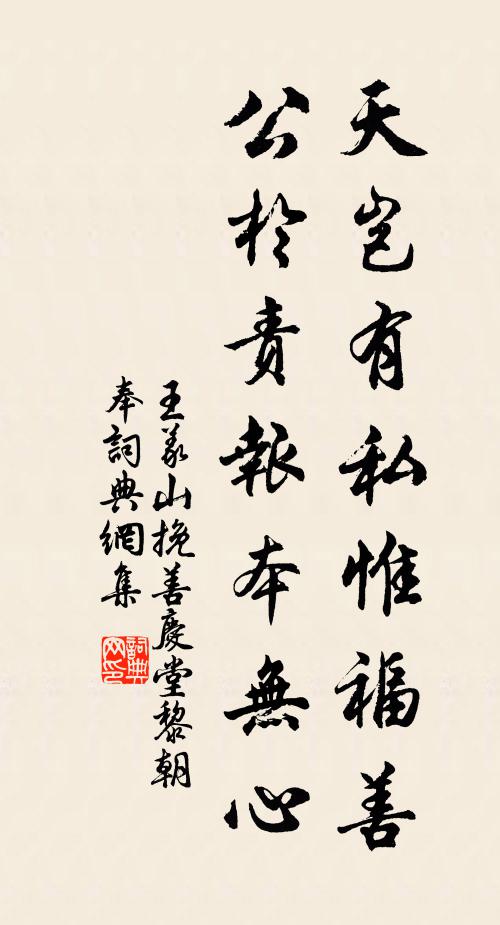 天豈有私惟福善
公於責報本無心
王義山挽善慶堂黎朝
奉詞典網集
詞典
网印